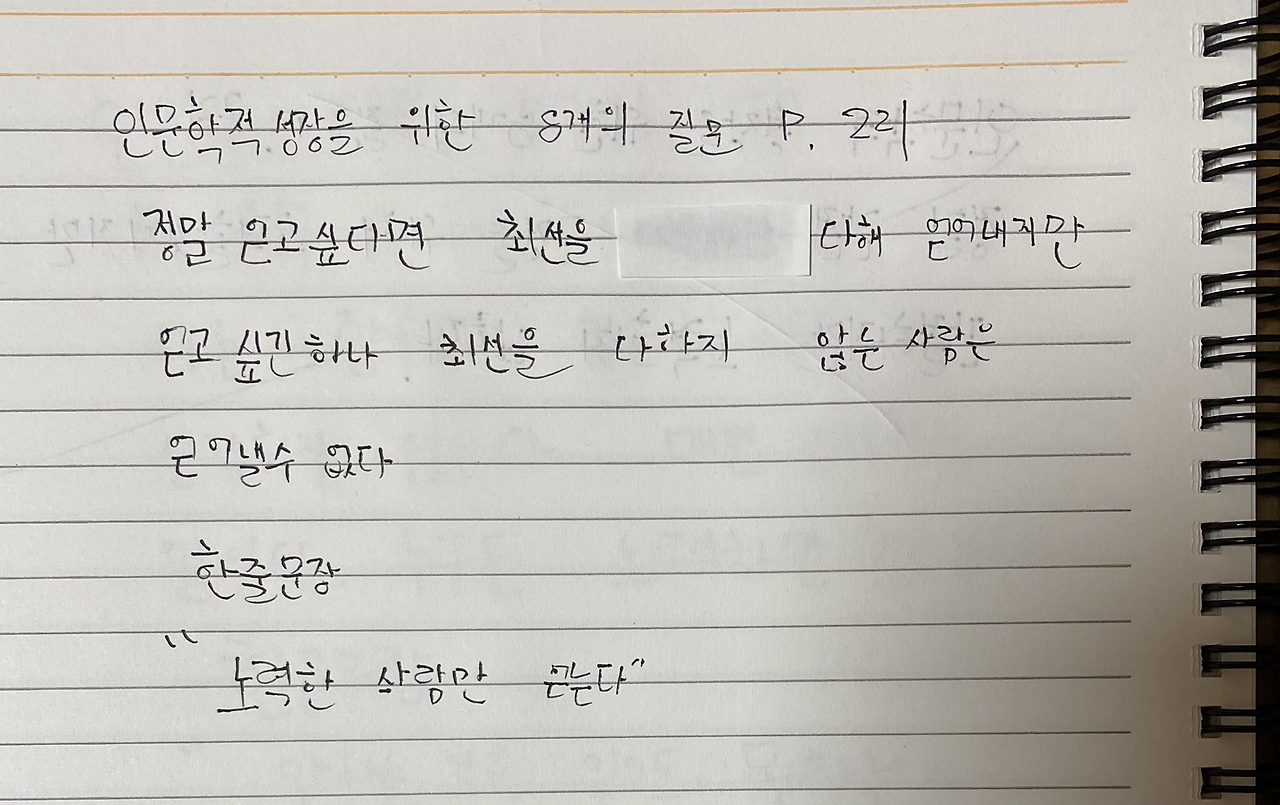 인문학적 성장을 위한 8개의 질문 P. 221
정말 얻고 싶다면 최선을 다해 얻어내지만
얻고 싶긴 하나 최선을 다하지 않는 사람은
얻어낼 수 없다
한줄문장
"노력한 사람만 얻는다"